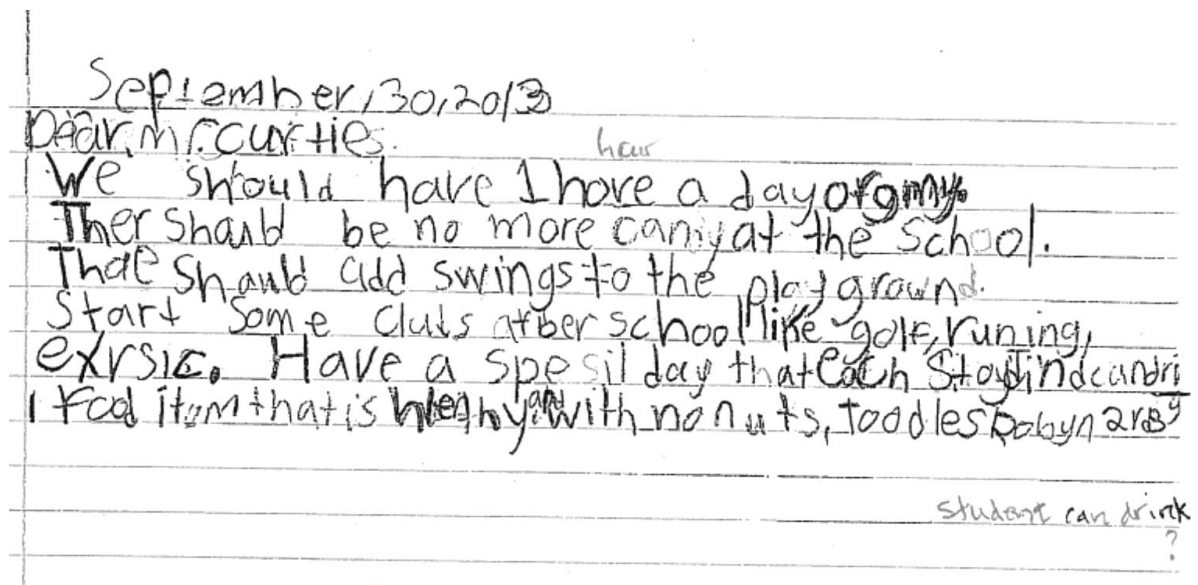 September,30,2013
Dear, mr. curties.
hour
We should have 1 hore a day of gmy.
Ther shauld be no more caniy at the school.
Thae shauld add swings to the playgrownd.
Start some cluds atber school like golf, runing,
exrsic. Have a spesil day that each
1 food itum that is with no nuts, toodles
student can drink
?